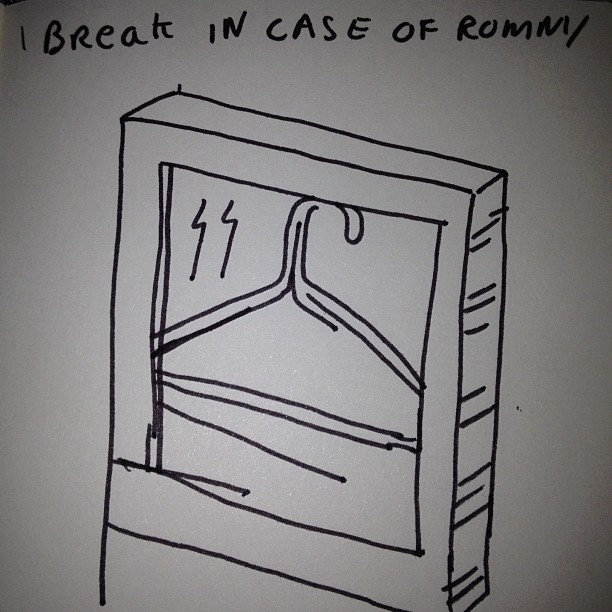 BREAK IN CASE OF ROMNY